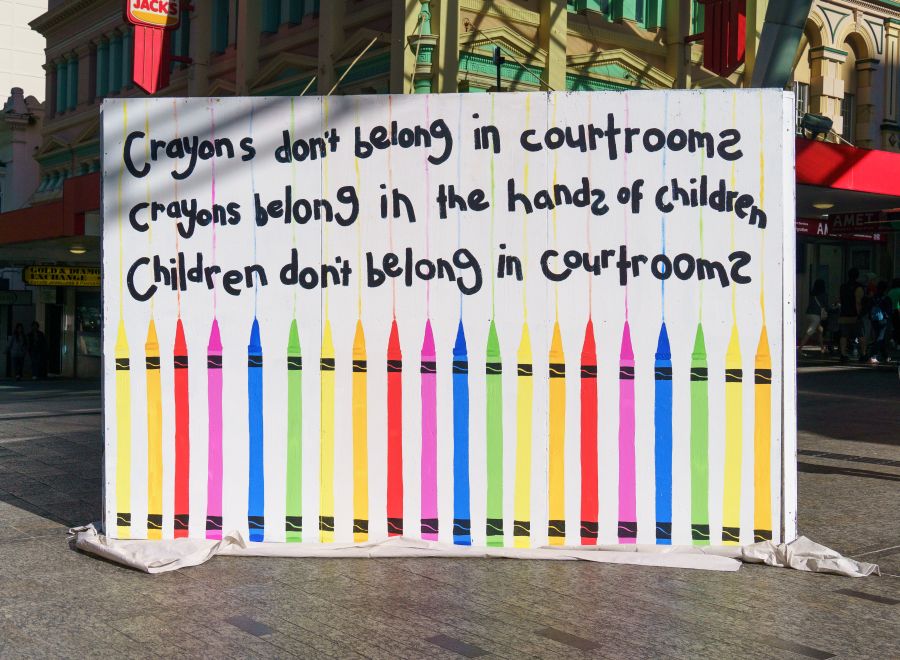 JACK'S
Crayons don't belong in courtrooms
Crayons belong in the hands of children
Children don't belong in courtrooms
GOLD & DIAMOND
EXCHANGE
AMET